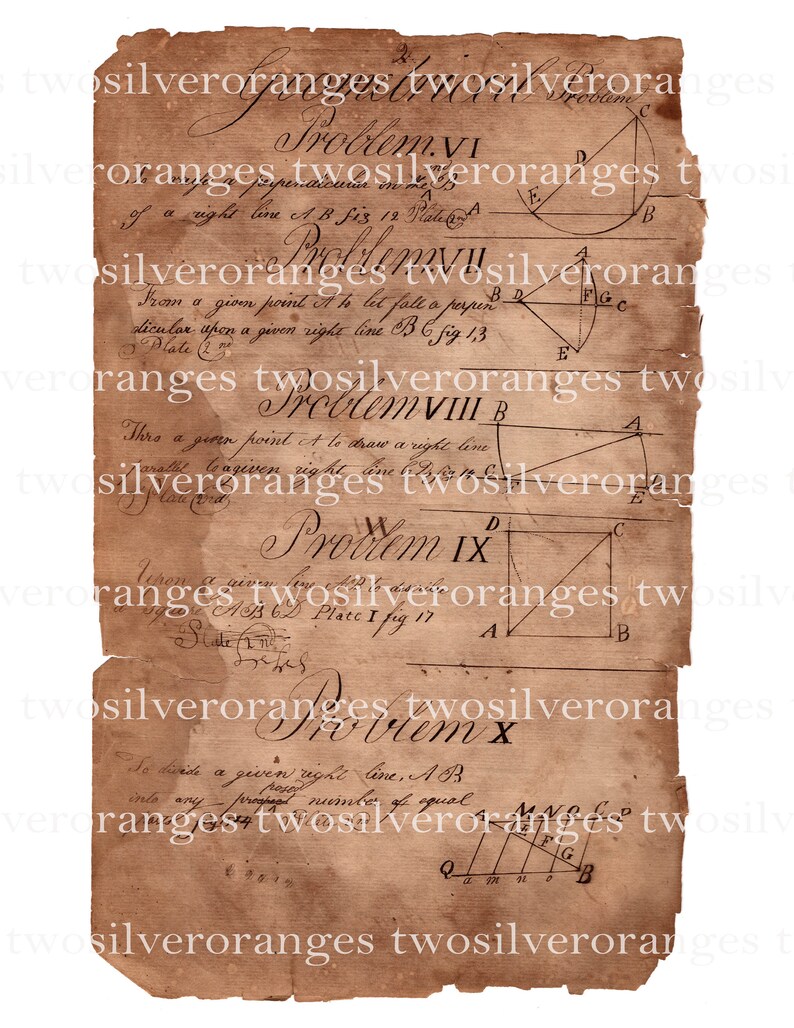 2
Geometrical Problem
Problem. VI
To raise a perpendicular on the end B
of a right line A B fig 12 Plate 2nd
A
E
D
C
B
Problem. VII
From a given point A to let fall a perpen
dicular upon a given right line B C fig 13
Plate 2nd
A
B D F G C
E
Problem VIII
Thro a given point A to draw a right line
parallel to a given right line C D, fig 14
Plate 2nd
B A
C F E D
Problem IX
Upon a given line AB to describe
a square A B C D Plate I fig 17
Plate 2nd
D C
A B
Problem X
To divide a given right line, A B
into any proposed number of equal
parts
A M N O C P
E F G
Q a m n o B
twosilveroranges twosilveroranges
twosilveroranges twosilveroranges
twosilveroranges twosilveroranges
twosilveroranges twosilveroranges
twosilveroranges twosilveroranges
twosilveroranges twosilveroranges
twosilveroranges twosilveroranges
twosilveroranges twosilveroranges
twosilveroranges twosilveroranges